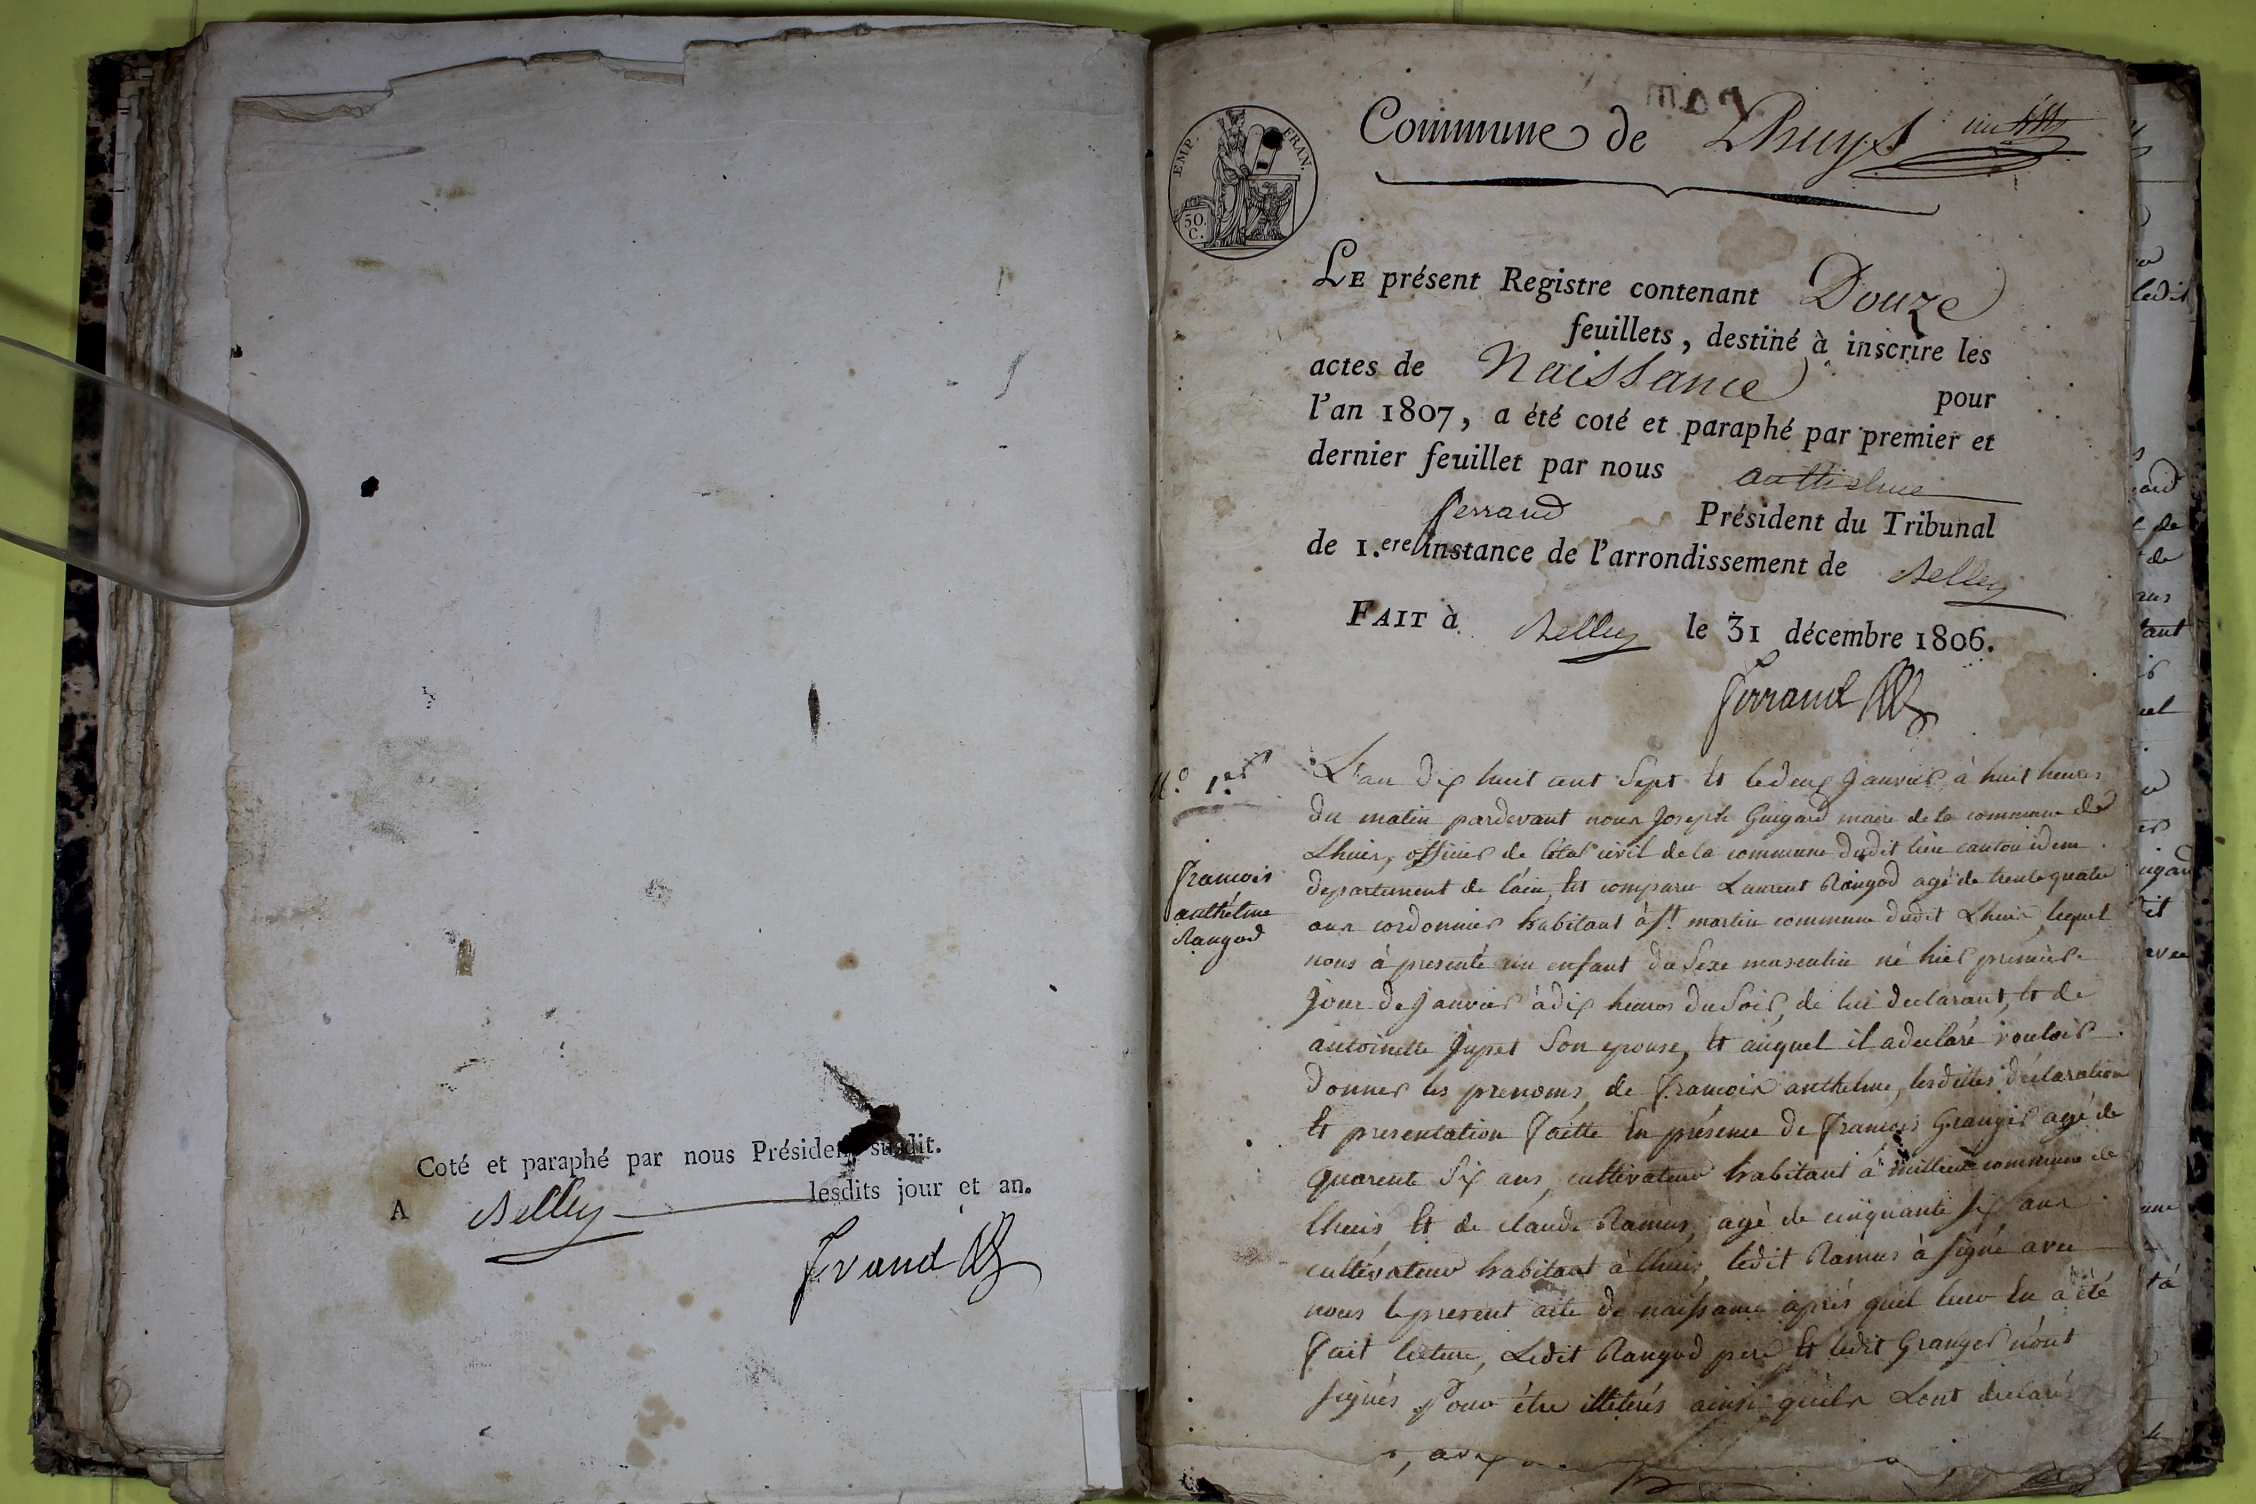 Coté et paraphé par nous Président susdit.
A Belley lesdits jour et an.
Ferrand
EMP. FRAN.
50. C.
Commune de Lhuys
LE présent Registre contenant Douze
feuillets, destiné à inscrire les
actes de Naissance pour
l'an 1807, a été coté et paraphé par premier et
dernier feuillet par nous anthelme
ferrand Président du Tribunal
de 1.ere instance de l'arrondissement de Belley
FAIT à Belley le 31 décembre 1806.
ferrand
N.° 1.er
francois
anthelme
Rangod
L'an dix huit cent sept et le deux janvier à huit heures
du matin pardevant nous joseph Guigard maire de la commune de
Lhuis, officier de l'état civil de la commune dudit lieu canton idem
departement de l'ain, est comparu Laurent Rangod agé de trente quatre
ans cordonnier habitant à st. martin commune dudit Lhuis lequel
nous à presenté un enfant du sexe masculin né hier premier
jour de janvier à dix heures du soir, de lui declarant, et de
antoinette jupet son epouse, et auquel il a declaré vouloir
donner les prenoms, de francois anthelme, lesdittes déclaration
et presentation faitte en présence de francois Granger agé de
quarente six ans, cultivateur habitant à millieu commune de
lhuis, et de claude Ramus, agé de cinquante six ans
cultivateur habitant à lhuis, ledit Ramus à signé avec
nous le present acte de naissance après qu'il leur en a été
fait lecture, Ledit Rangod pere et ledit Granger n'ont
signés pour être illeterés ainsi qu'ils l'ont declarés